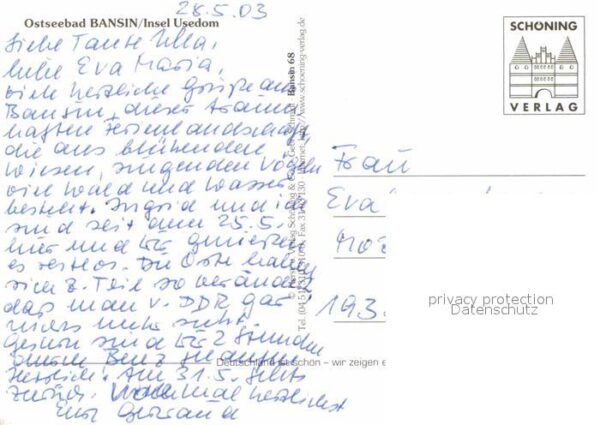 28.5.03
Ostseebad BANSIN/Insel Usedom
Liebe Tante Ulla,
liebe Eva Maria,
viele herzliche Grüße aus
Bansin, dieser traum-
haften Ferienlandschaft
die aus blühenden
Wiesen, singenden Vögeln
viel Wald und Wasser
besteht. Ingrid und ich
sind seit dem 25.5.
hier und genießen
es restlos. Die Orte haben
sich z. Teil so verändert
daß man v. DDR gar
nichts mehr sieht.
Gestern sind wir 2 Stunden
Benz
herrlich! Am 31.5. geht's
zurück. Nochmal herzlichst
Eure
Bansin 68
Schöning & Co
http://www.schoening-verlag.de
SCHÖNING
VERLAG
Frau
Eva
193
Deutschland ist schön – wir zeigen e
privacy protection
Datenschutz